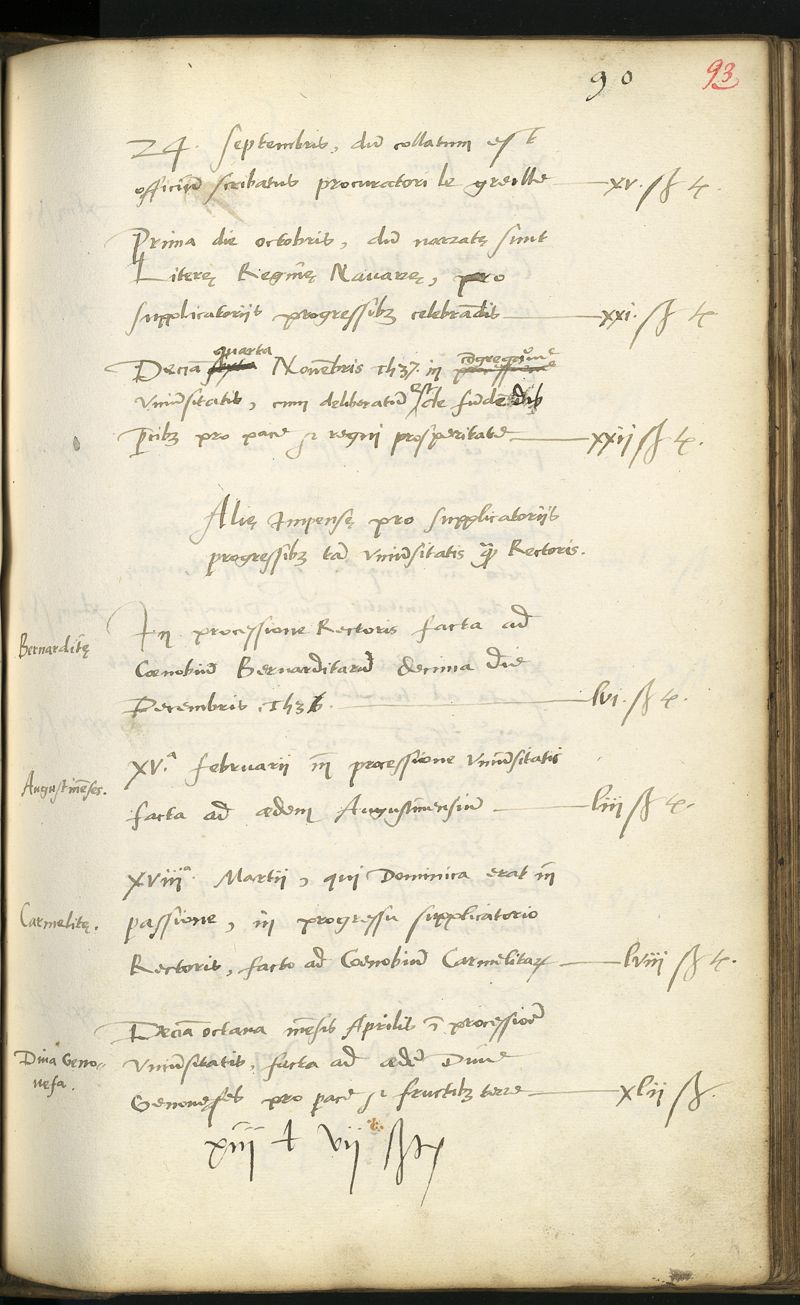 90 93
24. Septembris, dū collatum est
officiū scribatus procuratori le greslle — xv. ß
Prima die octobris, dū narratę sunt
Literę Reginę Nauarrę, pro
supplicatoriis progressibꝫ celebrādis — xxi. ß
quarta cōgregatione
Deciā Nouēbris 1537. in
Vniuersitatis, cum deliberatū est de fūdēdis
p̄cibꝫ pro pace et regni prosperitate — xxij ß
Alię Impensę pro supplicatoriis
progressibꝫ tā Vniuersitatis quā Rectoris.
Bernarditę
In processione Rectoris facta ad
Cœnobiū Bernarditarū decima die
Decembris 1536. — lvi. ß
Augustinēses.
XV.ª februarii in processione Vniuersitatis
facta ad ædem Augustinensiū — liii ß
Carmelitę.
XViiiª. Martii, qui Dominica erat in
passione, in progressu supplicatorio
Rectoris, facto ad Cœnobiū Carmelitaꝝ — lviii ß
Diua Geno-
uefa.
Deciā octaua mēsis Aprilis ī processiōe
Vniuersitatis, facta ad ædē Diuę
Genouefes pro pace et fructibꝫ terre — xlii ß.
xiii ł vii ß